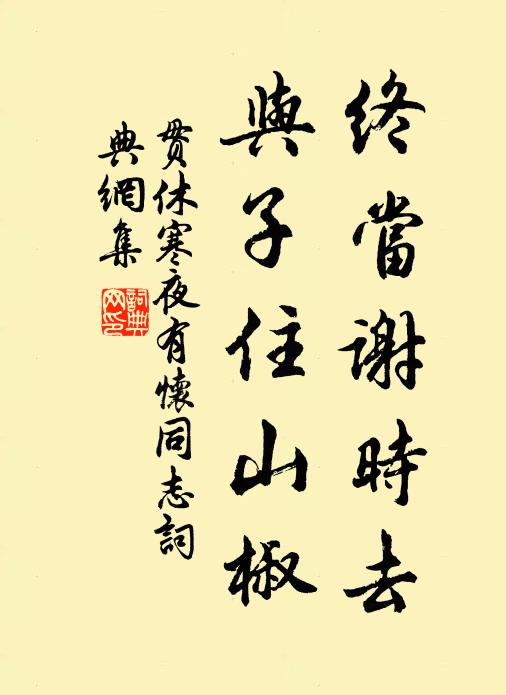 終當謝時去
與子住山椒
貫休寒夜有懷同志詞
典網集
詞典網印